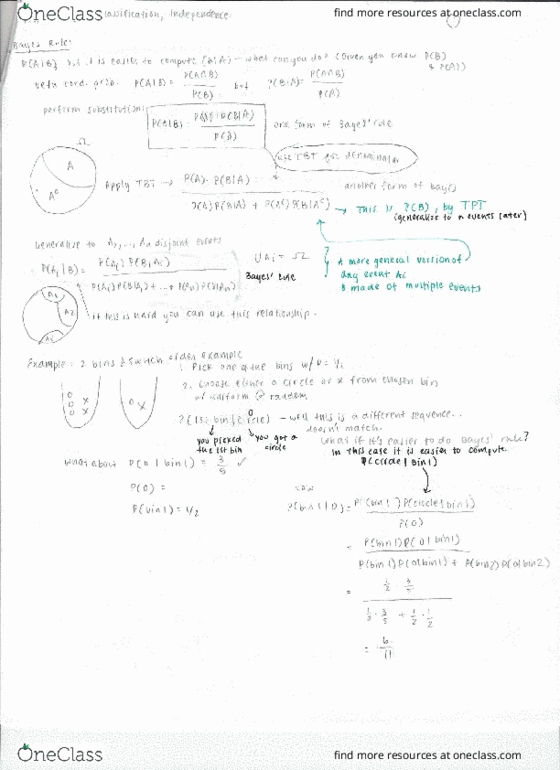 OneClass
find more resources at oneclass.com
Classification, Independence
Bayes Rule:
P(A|B) but it is easier to compute P(B|A) – what can you do? (Given you know P(B)
& P(A))
cond. prob. P(A|B) = P(A∩B) / P(B) but P(B|A) = P(A∩B) / P(A)
perform substitution:
P(A|B) = P(A) P(B|A) / P(B)
one form of Bayes' rule
use TBT for denominator
Ω
A
Aᶜ
Apply TBT → P(A) · P(B|A)
another form of bayes
P(A)P(B|A) + P(Aᶜ)P(B|Aᶜ) → This is P(B), by TPT
(generalize to n events later)
Generalize to A₁,..., An disjoint events
P(Ai|B) = P(Ai)P(B|Ai)
P(A₁)P(B|A₁) + ... + P(An)P(B|An)
∪Ai = Ω
Bayes' rule
A more general version of
any event Ai
& made of multiple events
If this is hard you can use this relationship.
Example: 2 bins & switch order example
1. Pick one of the bins w/ P = ½
2. Choose either a circle or x from chosen bin
w/ uniform @ random
P(1st bin | circle) – well this is a different sequence..
doesn't match.
you picked the 1st bin
you got a circle
What if it's easier to do Bayes' rule?
in this case it is easier to compute
P(circle | bin1)
What about P(o | bin1) = 3/5 ✓
P(O) =
P(bin1) = 1/2
now
P(bin1|O) = P(bin1)P(circle|bin1)
P(O)
= P(bin1)P(O|bin1)
P(bin1)P(O|bin1) + P(bin2)P(O|bin2)
= ½ · 3/5
½ · 3/5 + ½ · ½
= 6/11
OneClass
find more resources at oneclass.com